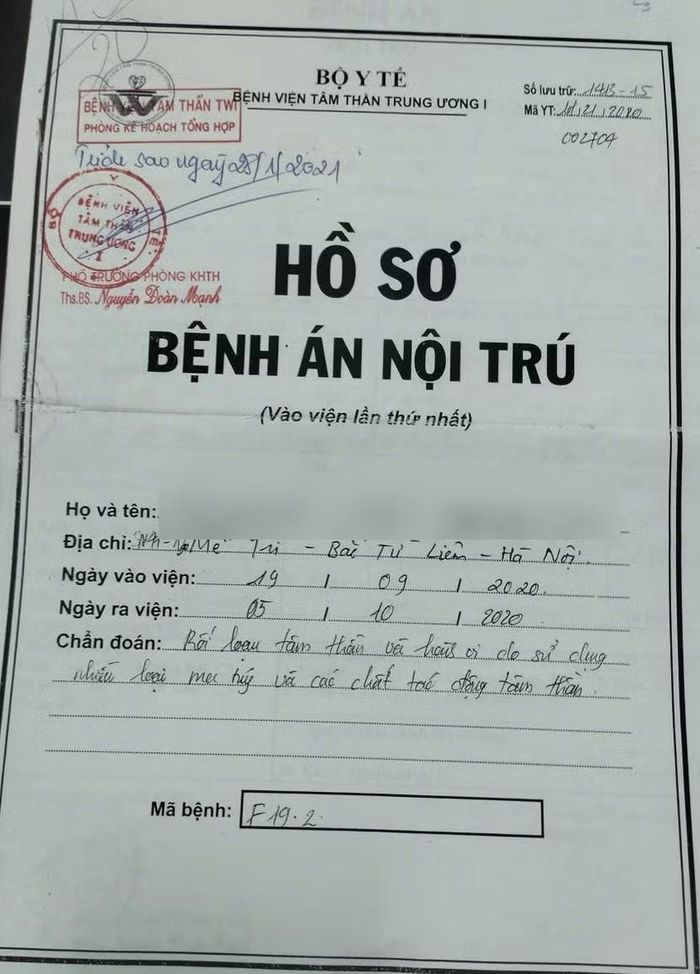 BỘ Y TẾ
BỆNH VIỆN TÂM THẦN TRUNG ƯƠNG I
Số lưu trữ: 14B-15
Mã YT: 10/21/2020
002704
BỆNH VIỆN TÂM THẦN TWI
PHÒNG KẾ HOẠCH TỔNG HỢP
Trích sao ngày 25/1/2021
BỘ Y TẾ
BỆNH VIỆN
TÂM THẦN
TRUNG ƯƠNG
I
PHÓ TRƯỞNG PHÒNG KHTH
Ths.BS. Nguyễn Doãn Mạnh
HỒ SƠ
BỆNH ÁN NỘI TRÚ
(Vào viện lần thứ nhất)
Họ và tên:
Địa chỉ: Mễ Trì - Bắc Từ Liêm - Hà Nội.
Ngày vào viện: 19 / 09 / 2020
Ngày ra viện: 05 / 10 / 2020
Chẩn đoán: Rối loạn tâm thần và hành vi do sử dụng
nhiều loại ma túy và các chất tác động tâm thần.
Mã bệnh: F19.2